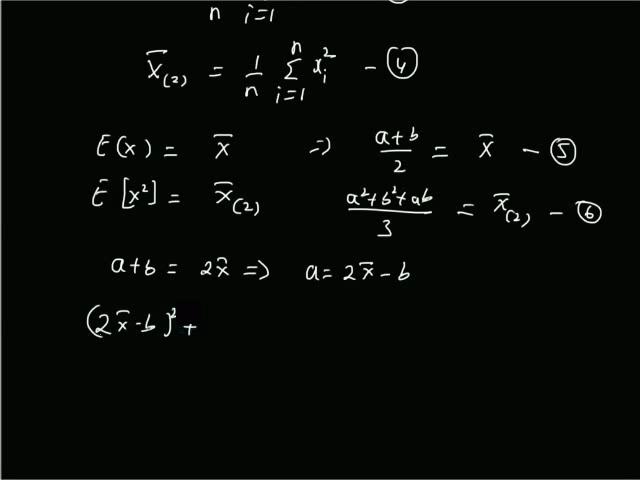 n i=1
x̄₍₂₎ = 1/n Σ_{i=1}^{n} x_i² - ④
E(x) = x̄ => (a+b)/2 = x̄ - ⑤
E[x²] = x̄₍₂₎ (a²+b²+ab)/3 = x̄₍₂₎ - ⑥
a+b = 2x̄ => a = 2x̄ - b
(2x̄ - b)² +